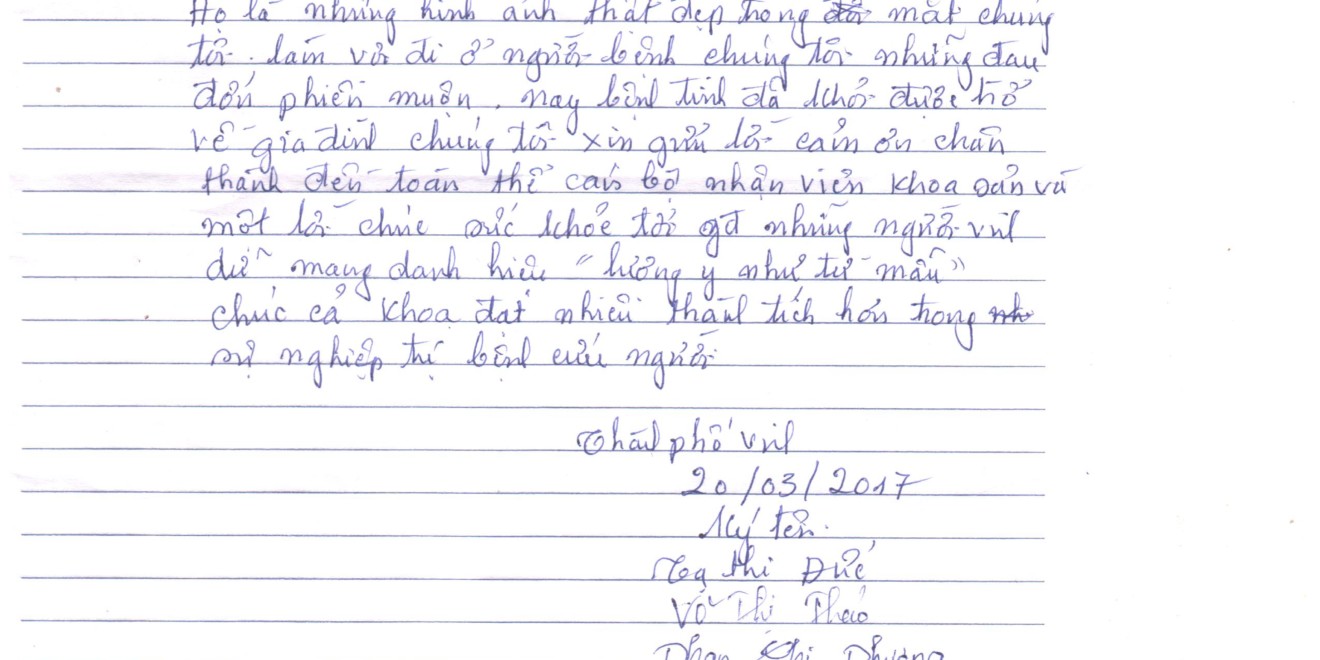 Họ là những hình ảnh thật đẹp trong mắt chúng
tôi. làm vơi đi ở người bệnh chúng tôi những đau
đớn phiền muộn. nay bệnh tình đã khỏi được trở
về gia đình chúng tôi xin gửi lời cảm ơn chân
thành đến toàn thể cán bộ nhân viên khoa sản và
một lời chúc sức khỏe tới gđ những người
mang danh hiệu "lương y như từ mẫu"
chúc cả khoa đạt nhiều thành tích hơn trong
sự nghiệp trị bệnh cứu người
Thành phố Vinh
20/03/2017
Ký tên.
Tạ thị Đức
Võ Thị Thảo
Phan Thị Phương